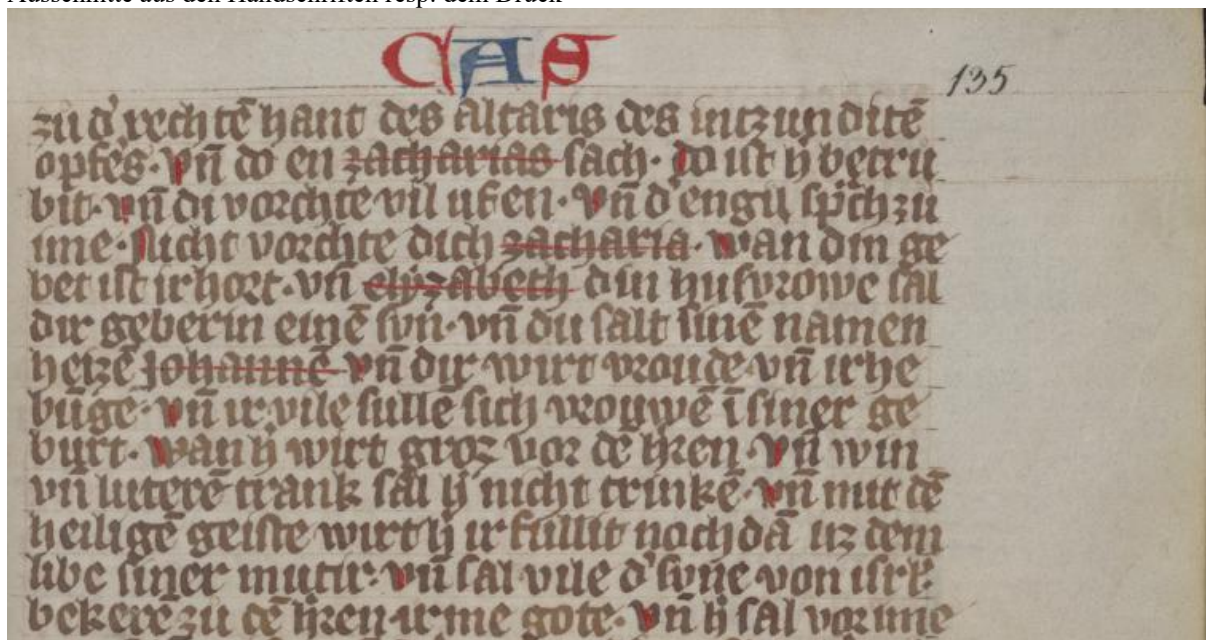 Ausschnitte aus den Handschriften resp. dem Druck
CAS
135
zu d' rechtē hant des altaris des intzunditē
opfers. vn̄ do en zacharias sach. do ist h' betru
bit. vn̄ di vorchte vil ufen. vn̄ d' engil sp̄ch zu
ime. Nicht vorchte dich zacharia. wan din ge
bet ist irhort. vn̄ elyzabeth din husvrowe sal
dir geberin einē svn. vn̄ du salt sinē namen
heizē Johannē vn̄ dir wirt vroude. vn̄ irhe
būge. vn̄ ir vile sullē sich vrouwē ī siner ge
burt. wan h' wirt groz vor dē h̄ren. vn̄ win
vn̄ luterē trank sal h' nicht trinkē. vn̄ mit dē
heiligē geiste wirt h' irfullit noch dā uz dem
libe siner mutir. vn̄ sal vile d' svne von isrl'.
bekerē zu dē h̄ren irme gote. vn̄ h' sal vor ime